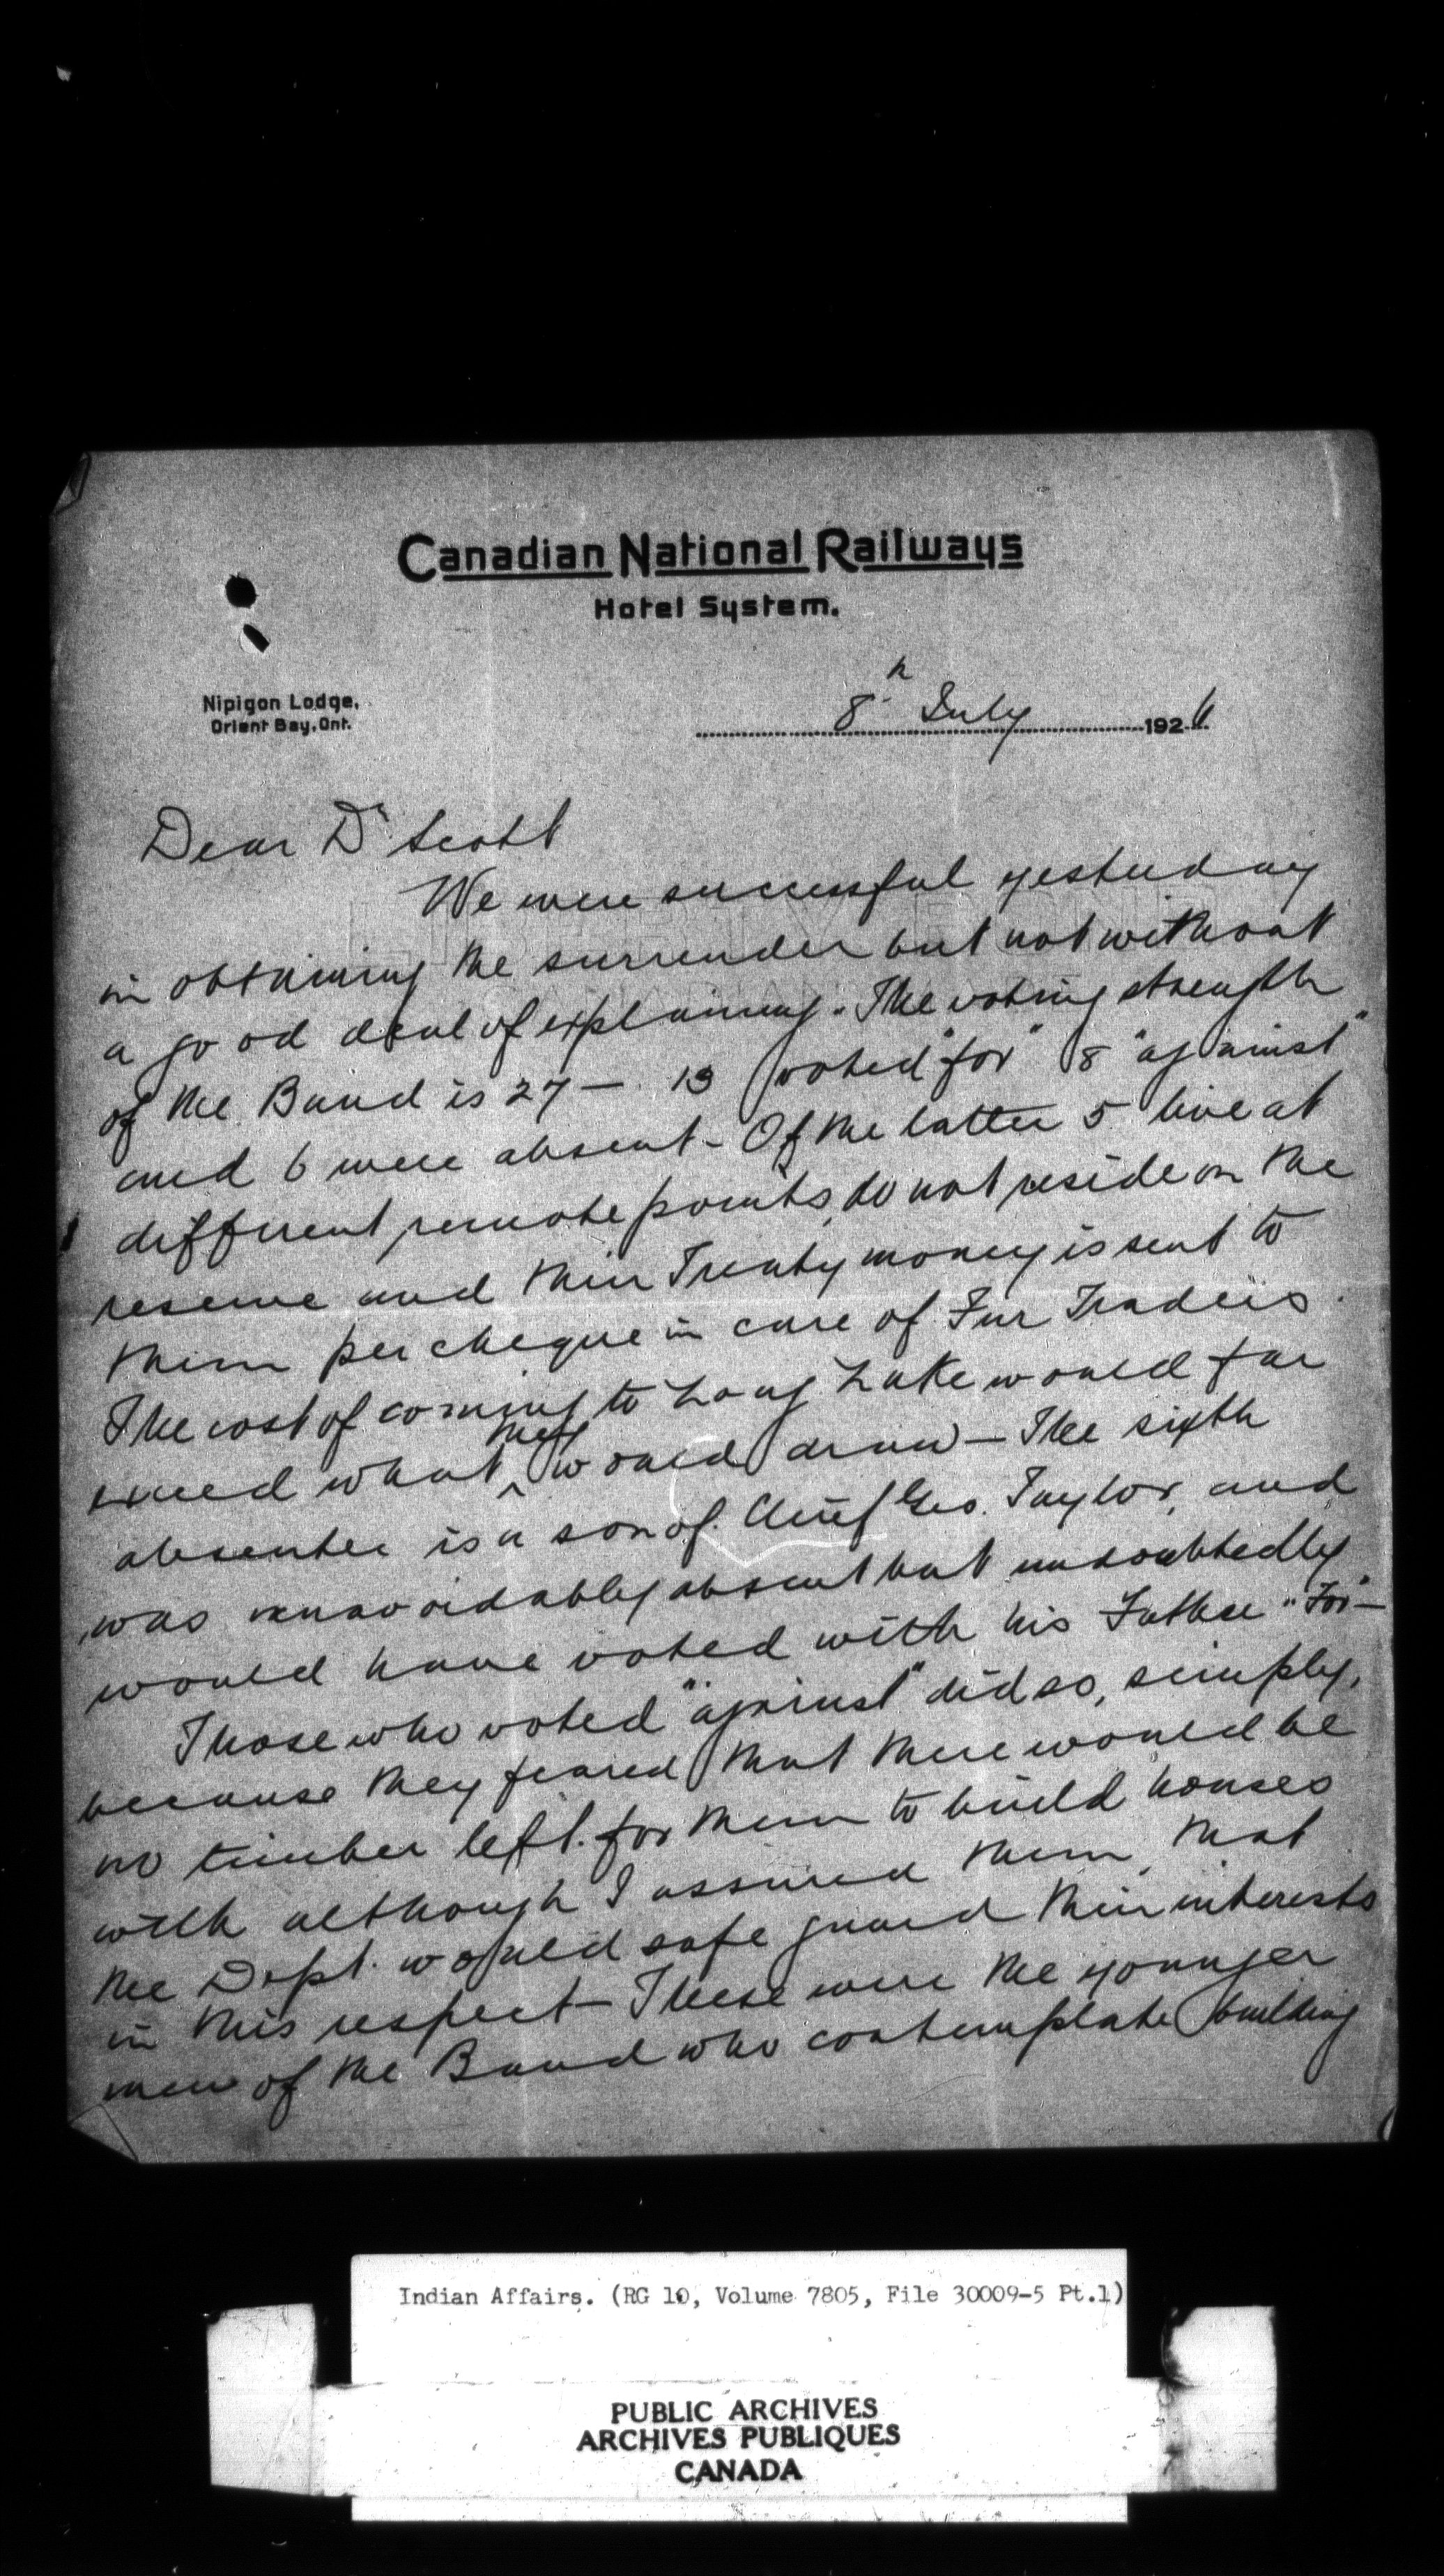 Canadian National Railways
Hotel System.
Nipigon Lodge,
Orient Bay, Ont.
8th July 1926
Dear Dr Scott
We were successful yesterday
in obtaining the surrender but not without
a good deal of explaining. The voting strength
of the Band is 27 — 13 voted "for" 8 "against"
and 6 were absent - Of the latter 5 live at
different remote points, do not reside on the
reserve and their Treaty money is sent to
them per cheque in care of Fur Traders.
The cost of coming to Long Lake would far
exceed what they would draw — The sixth
absentee is a son of Chief Geo. Taylor, and
was unavoidably absent but undoubtedly
would have voted with his Father "For" —
Those who voted "against" did so, simply,
because they feared that there would be
no timber left for them to build houses
with although I assured them, that
the Dept. would safe guard their interests
in this respect — These were the younger
men of the Band who contemplate building
Indian Affairs. (RG 10, Volume 7805, File 30009-5 Pt.1)
PUBLIC ARCHIVES
ARCHIVES PUBLIQUES
CANADA